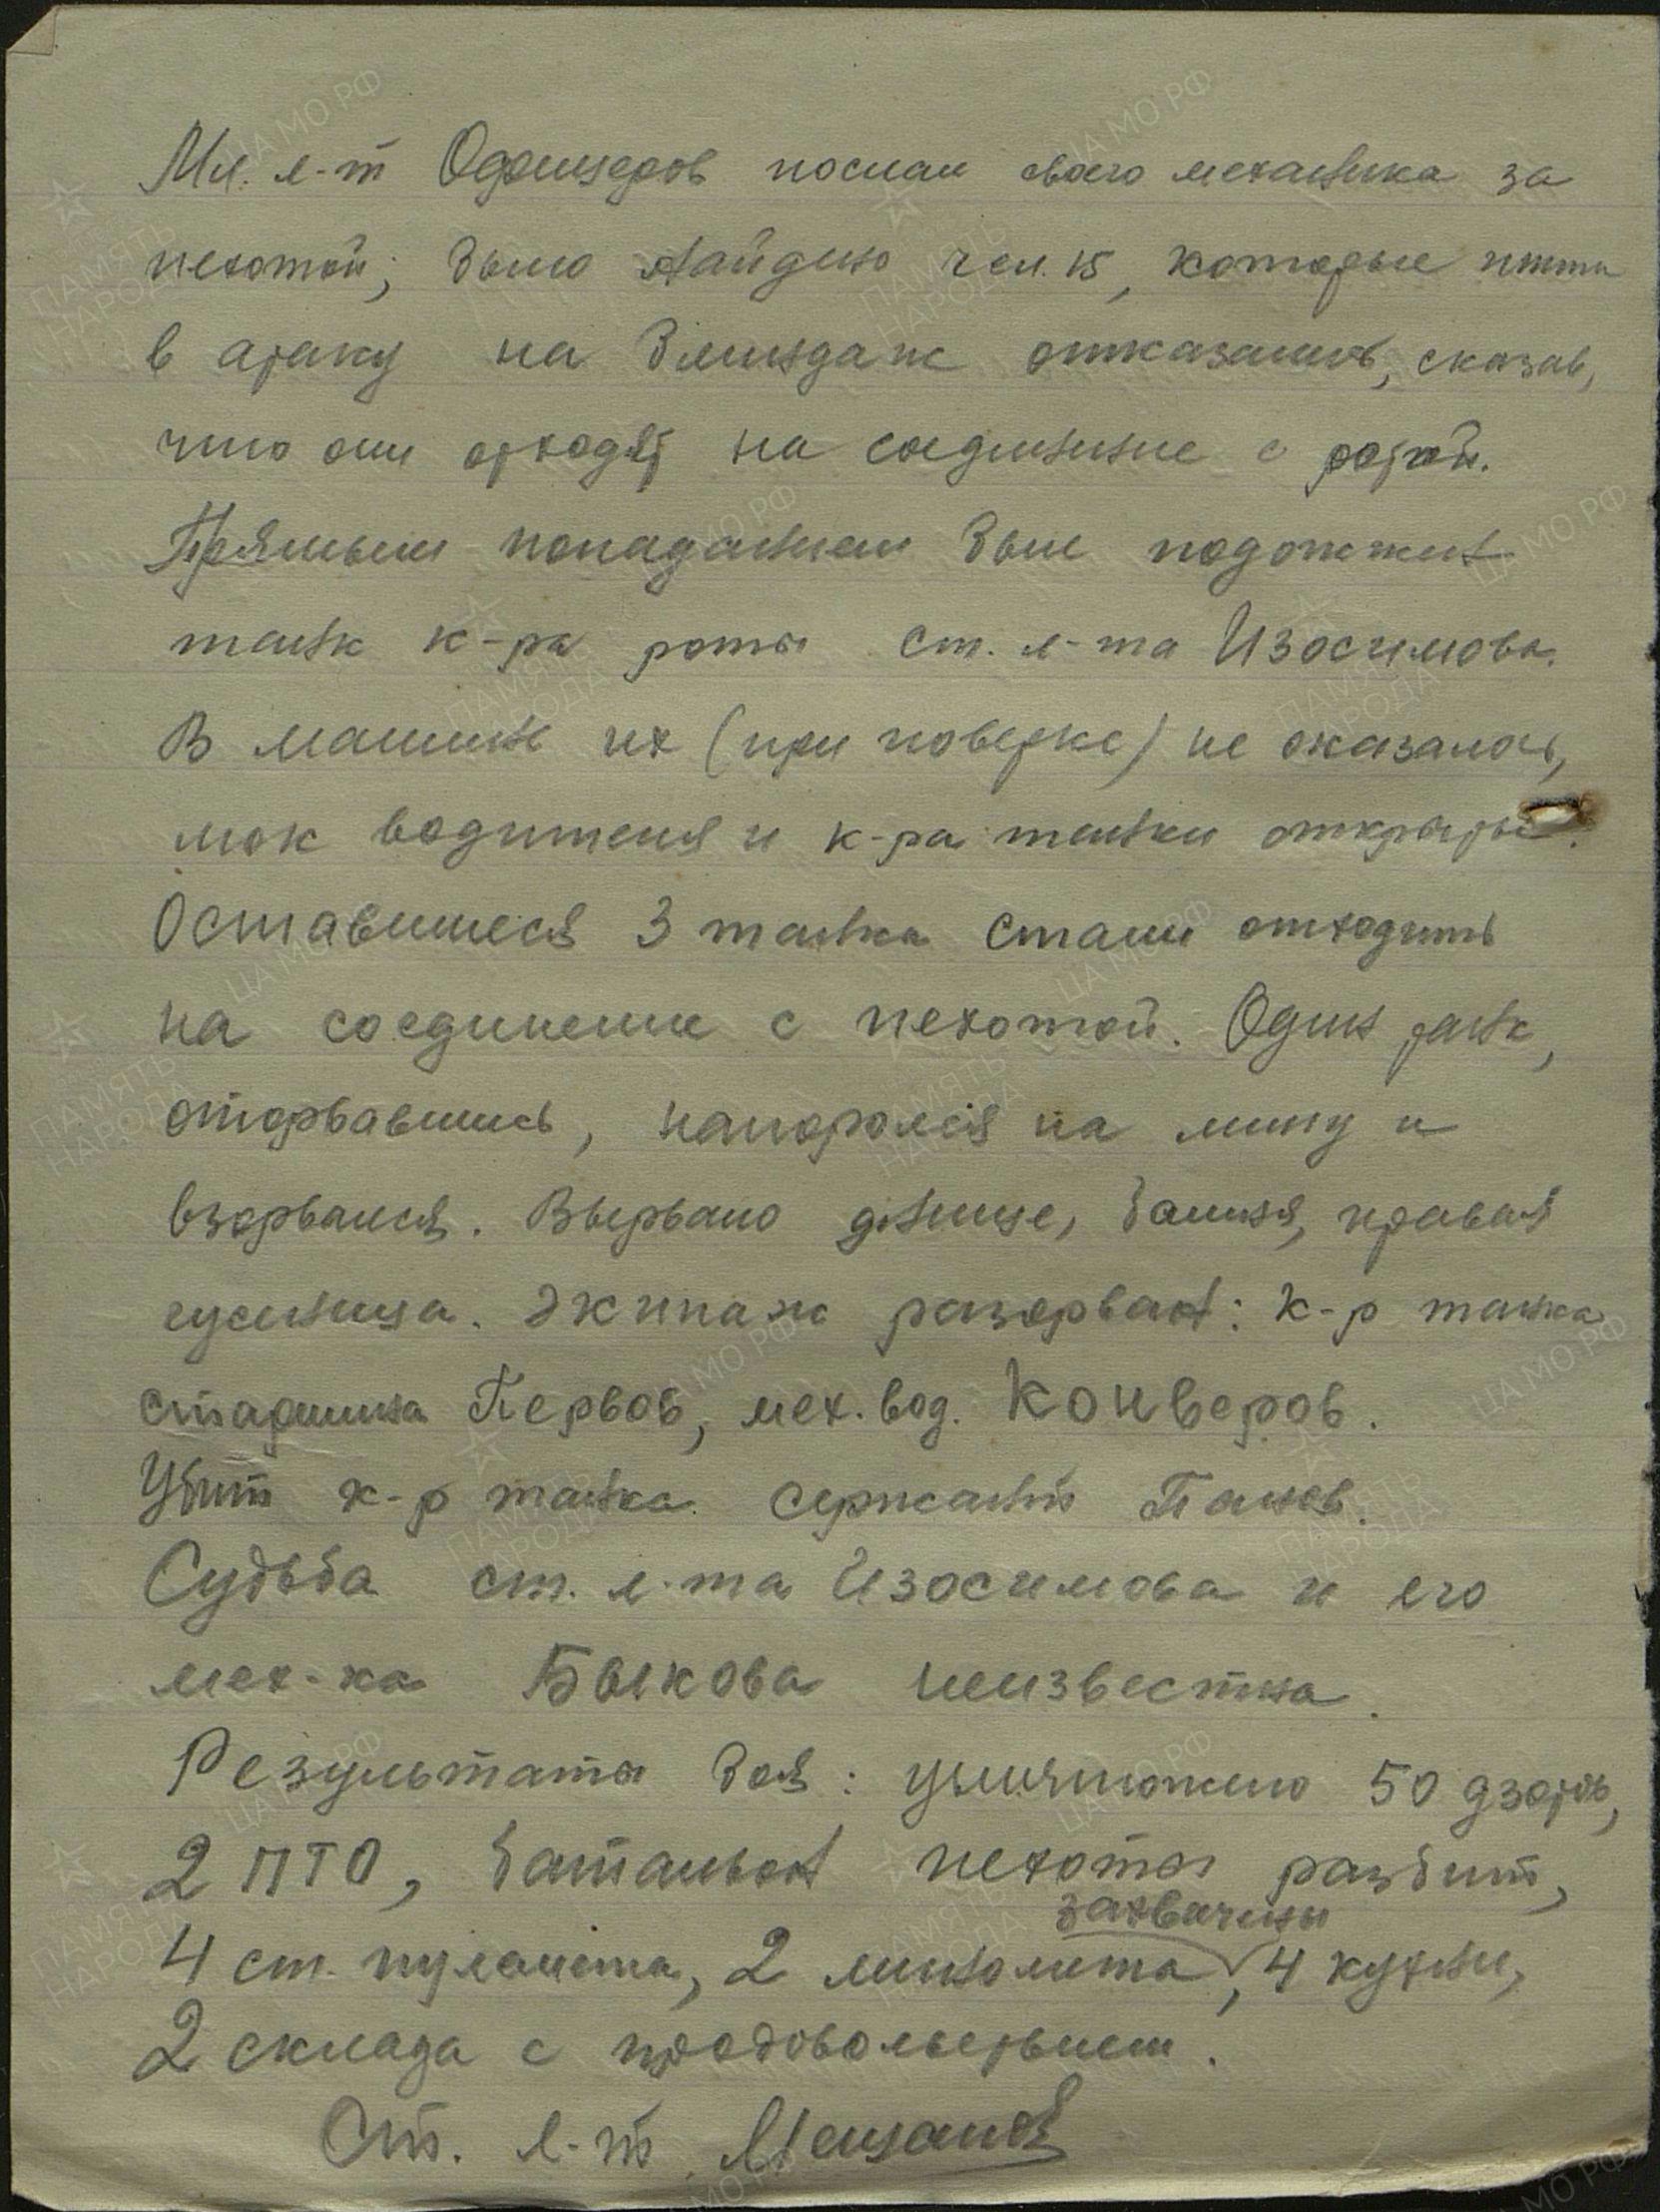 Мл. л-т Офицеров послал своего механика за
пехотой; было найдено чел. 15, которые итти
в атаку на блиндаж отказались, сказав,
что они отходят на соединение с ротой.
Прямым попаданием был подожжен
танк к-ра роты ст. л-та Изосимова.
В машине их (при поверке) не оказалось,
люк водителя и к-ра танка открыты.
Оставшиеся 3 танка стали отходить
на соединение с пехотой. Один танк,
оторвавшись, напоролся на мину и
взорвался. Вырвано днище, башня, правая
гусеница. Экипаж разорван: к-р танка
старшина Первов, мех. вод. Конверов.
Убит к-р танка сержант Панов.
Судьба ст. л-та Изосимова и его
мех-ка Быкова неизвестна.
Результаты боя: уничтожено 50 дзотов,
2 ПТО, батальон пехоты разбит,
захвачены
4 ст. пулемета, 2 миномета, 4 кухни,
2 склада с продовольствием.
Ст. л-т
ЦА МО РФ
ПАМЯТЬ НАРОДА